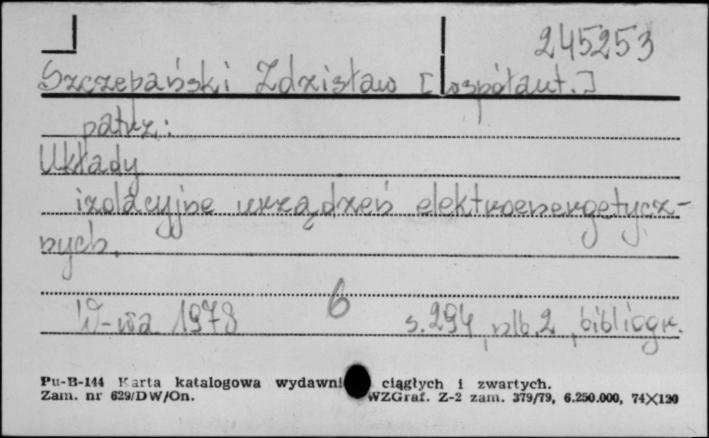 245253
Szczepański Zdzisław [współaut.]
patrz:
Układy
izolacyjne urządzeń elektroenergetycz-
nych.
6
W-wa 1978 s. 294, nlb. 2, bibliogr.
Pu-B-144 Karta katalogowa wydawni ciągłych i zwartych.
Zam. nr 629/DW/On. WZGraf. Z-2 zam. 379/79, 6.250.000, 74X120